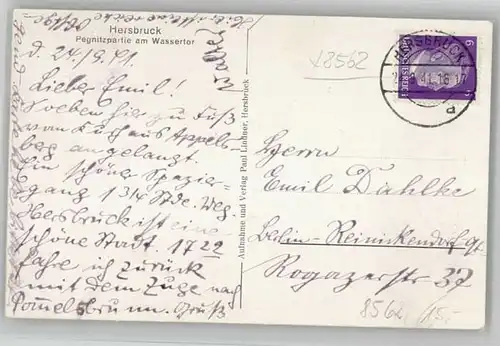 Hersbruck
Pegnitzpartie am Wassertor
d. 24/9.41.
Lieber Emil!
Soeben hier zu Fuß
von Kurhaus Appels-
berg angelangt.
Ein schöner Spazier-
gang 1 3/4 Stde. Weg.
Hersbruck ist eine
schöne Stadt. 17 22
fahre ich zurück
mit dem Zuge nach
Pommelsbrunn. Gruß
Walter
Aufnahme und Verlag Paul Lindner, Hersbruck
18562
HERSBRUCK
41.18
a
6
Herrn
Emil Dahlke
Berlin-Reinickendorf
Rogazerstr 37
8562 15,-